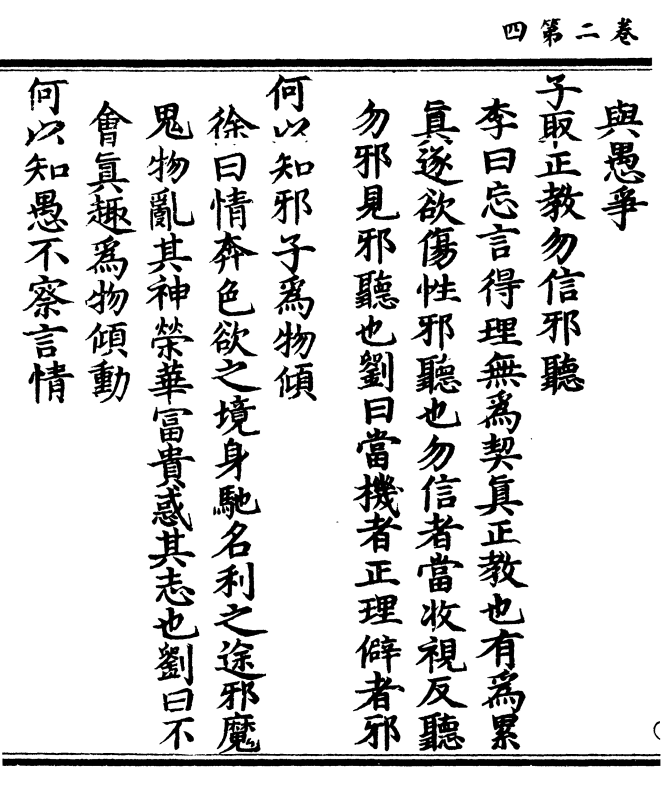 卷二第四
與愚爭
子取正教勿信邪聽
李曰忘言得理無為契眞正教也有為累
眞逐欲傷性邪聽也勿信者當收視反聽
勿邪見邪聽也劉曰當機者正理僻者邪
何以知邪子為物傾
徐曰情奔色欲之境身馳名利之途邪魔
鬼物亂其神榮華富貴惑其志也劉曰不
會眞趣為物傾動
何以知愚不察言情